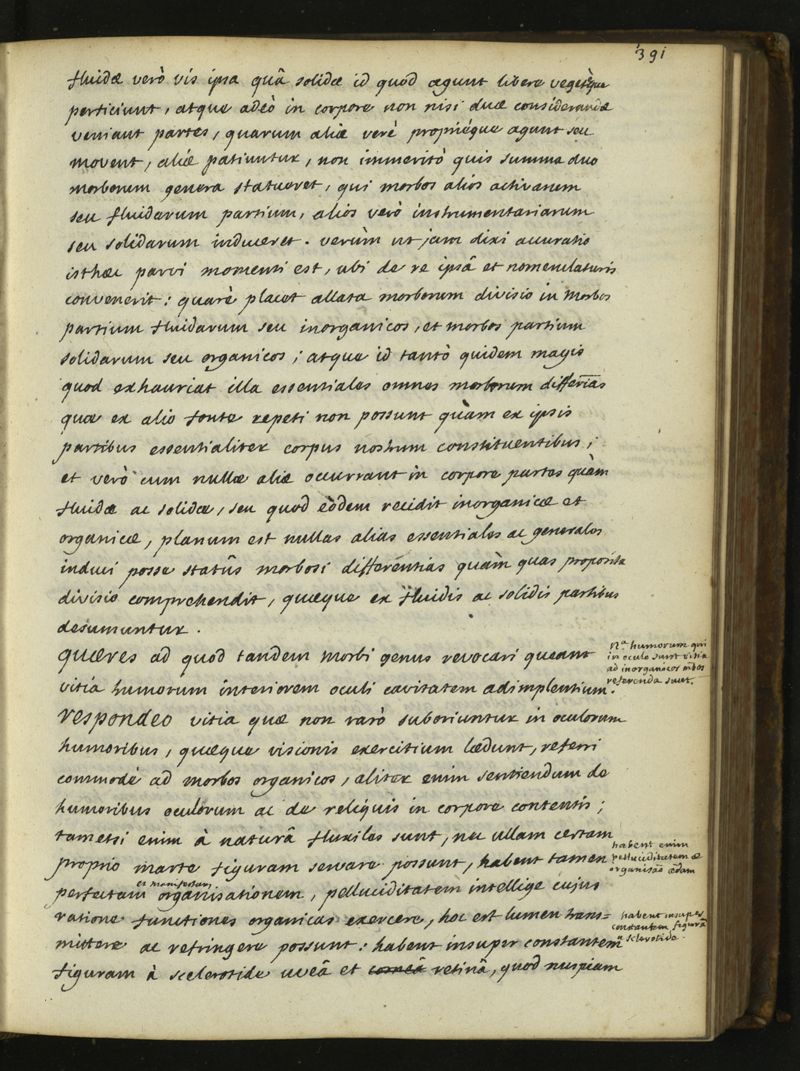 391
fluidæ verò vis ipsa quâ solidæ id quod agunt libere vegetèque
perficiunt, atque adeò in corpore non nisi duæ considerandæ
veniant partes, quarum aliæ verè propriéque agunt seu
movent, aliæ patiuntur, non immeritò quis summa duo
morborum genera statueret, qui morbos alios activarum
seu fluidarum partium, alios verò instrumentariarum
seu solidarum induceret. verùm ut jam dixi accuratio
isthæc parvi momenti est, ubi de re ipsâ et nomenclaturis
convenerit; quarè placet allata morborum divisio in morbos
partium fluidarum seu inorganicos, et morbos partium
solidarum seu organicos; atque id tantò quidem magis
quod exhauriat illa essentiales omnes morborum differ̅ias
quæ ex alio fonte repeti non possunt quàm ex ipsis
partibus essentialiter corpus nostrum constituentibus;
et verò cum nullæ aliæ occurrant in corpore partes quàm
fluidæ ac solidæ, seu quod eòdem recidit inorganicæ et
organicæ, planum est nullas alias essentiales ac generales
induci posse statûs morbosi differentias quàm quas proposita
divisio comprehendit, quæque ex fluidis ac solidis partibus
desumuntur.
quæres ad quod tandem morbi genus revocari queant
vitia humorum interiorem oculi cavitatem adimplentium.
nª humorum qui
in oculo sunt vitia
ad inorganicos
referenda sunt.
respondeo vitia quæ non rarò suboriuntur in oculorum
humoribus, quæque visionis exercitium lædunt, referri
commodè ad morbos organicos, aliter enim sentiendum de
humoribus oculorum ac de reliquis in corpore contentis;
tametsi enim à naturâ fluxiles sunt, nec ullam certam
proprio marte figuram servare possunt, habent tamen
habent enim
pelluciditatem
perfectam et manifestam organisationem, pelluciditatem intellige cujus
ratione functiones organicas exercere, hoc est lumen trans=
mittere ac refringere possunt: habent insuper constantem
habent insuper
constantem figurã
a sclerotide.
figuram à sclerotide uveâ et corneâ retinâ, quod nuspiam